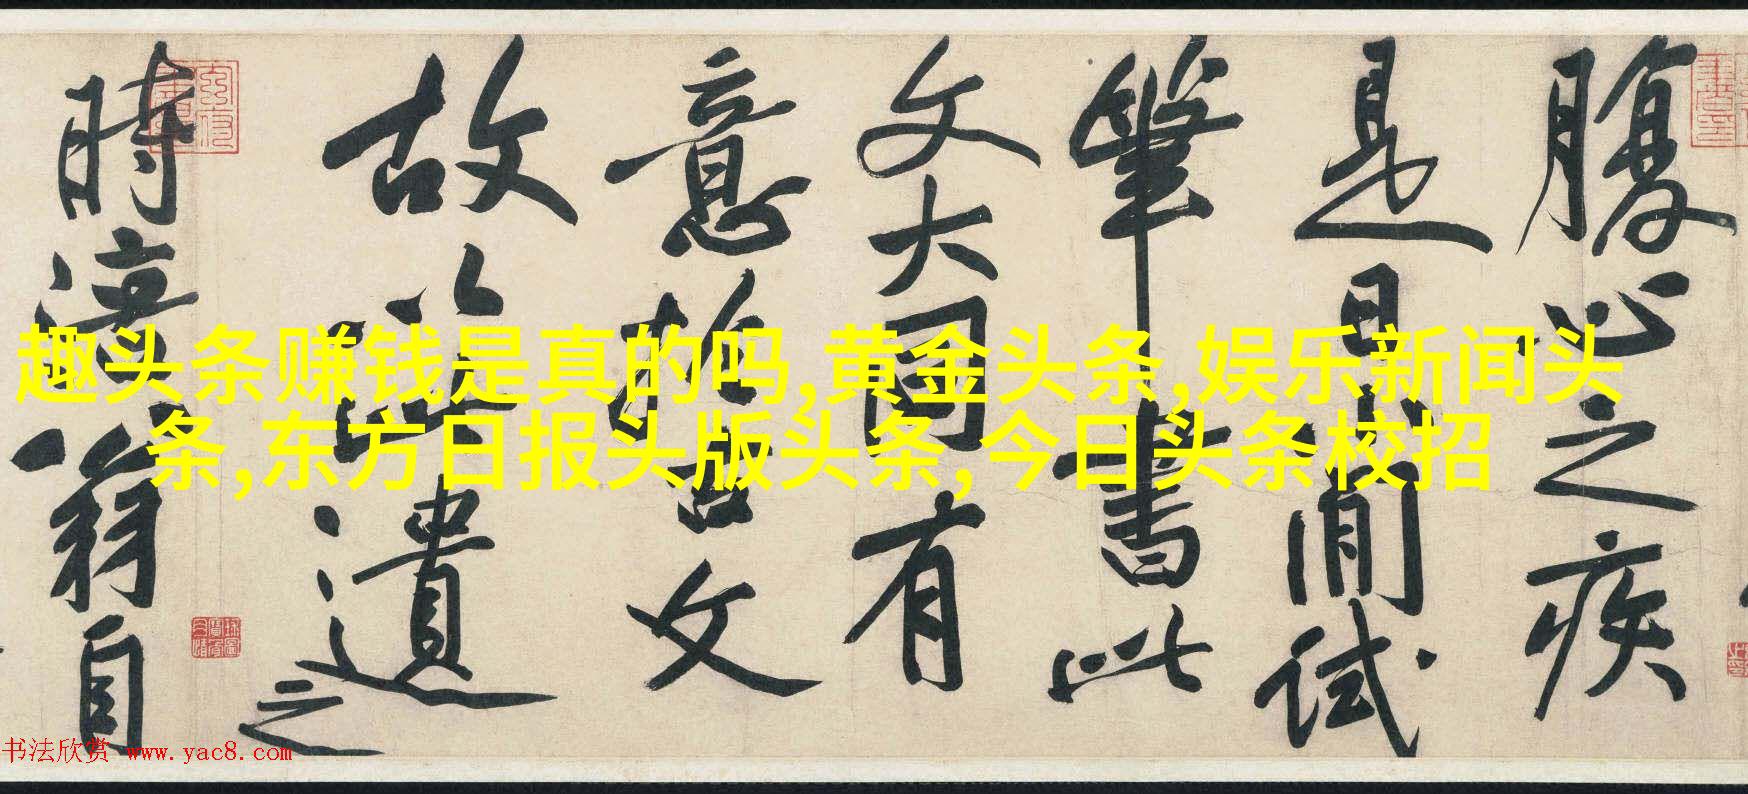 腹心之疾
是日小間試
筆書此
文大国有
意於古文
故遺之
時涪翁自
趣头条赚钱是真的吗,黄金头条,娱乐新闻头
条,东方日报头版头条,今日头条校招
书法欣赏 www.yac8.com